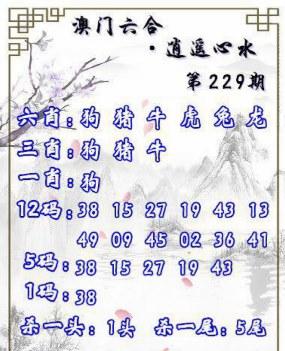 澳门六合
·逍遥心水
第229期
六肖:狗 猪 牛 虎 兔 龙
三肖:狗 猪 牛
一肖:狗
12码:38 15 27 19 43 13
49 09 45 02 36 41
5码:38 15 27 19 43
1码:38
杀一头:1头 杀一尾:5尾